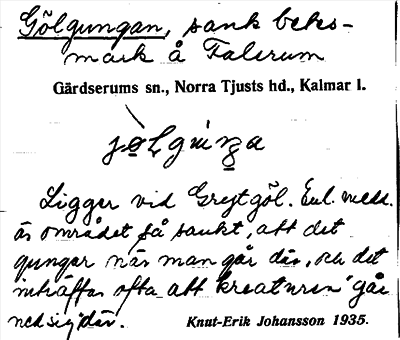 Gölgungan, sank betes-
mark å Falerum
Gärdserums sn., Norra Tjusts hd., Kalmar l.
Ligger vid Grejtgöl. Enl. medd.
är området så sankt, att det
gungar när man går där, och det
inträffar ofta att kreaturen "går
ned sig" där.
Knut-Erik Johansson 1935.